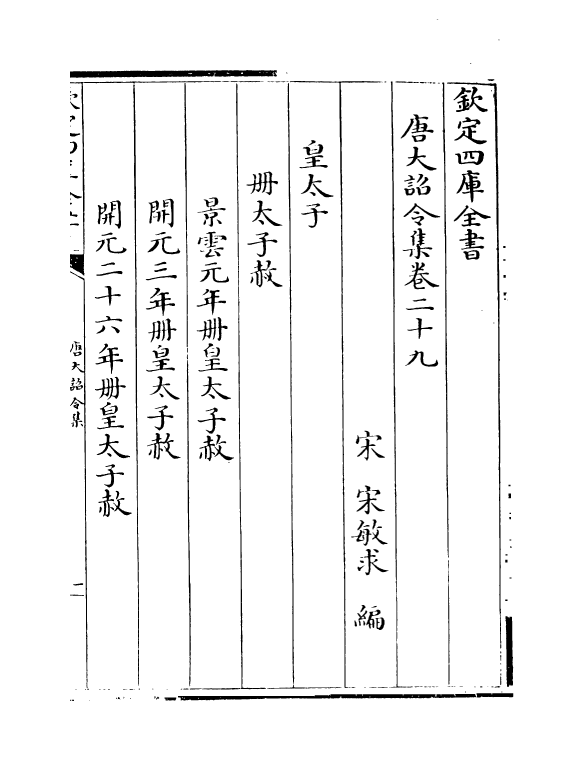 欽定四庫全書
唐大詔令集卷二十九
宋 宋敏求 編
皇太子
冊太子赦
景雲元年冊皇太子赦
開元三年冊皇太子赦
開元二十六年冊皇太子赦
唐大詔令集